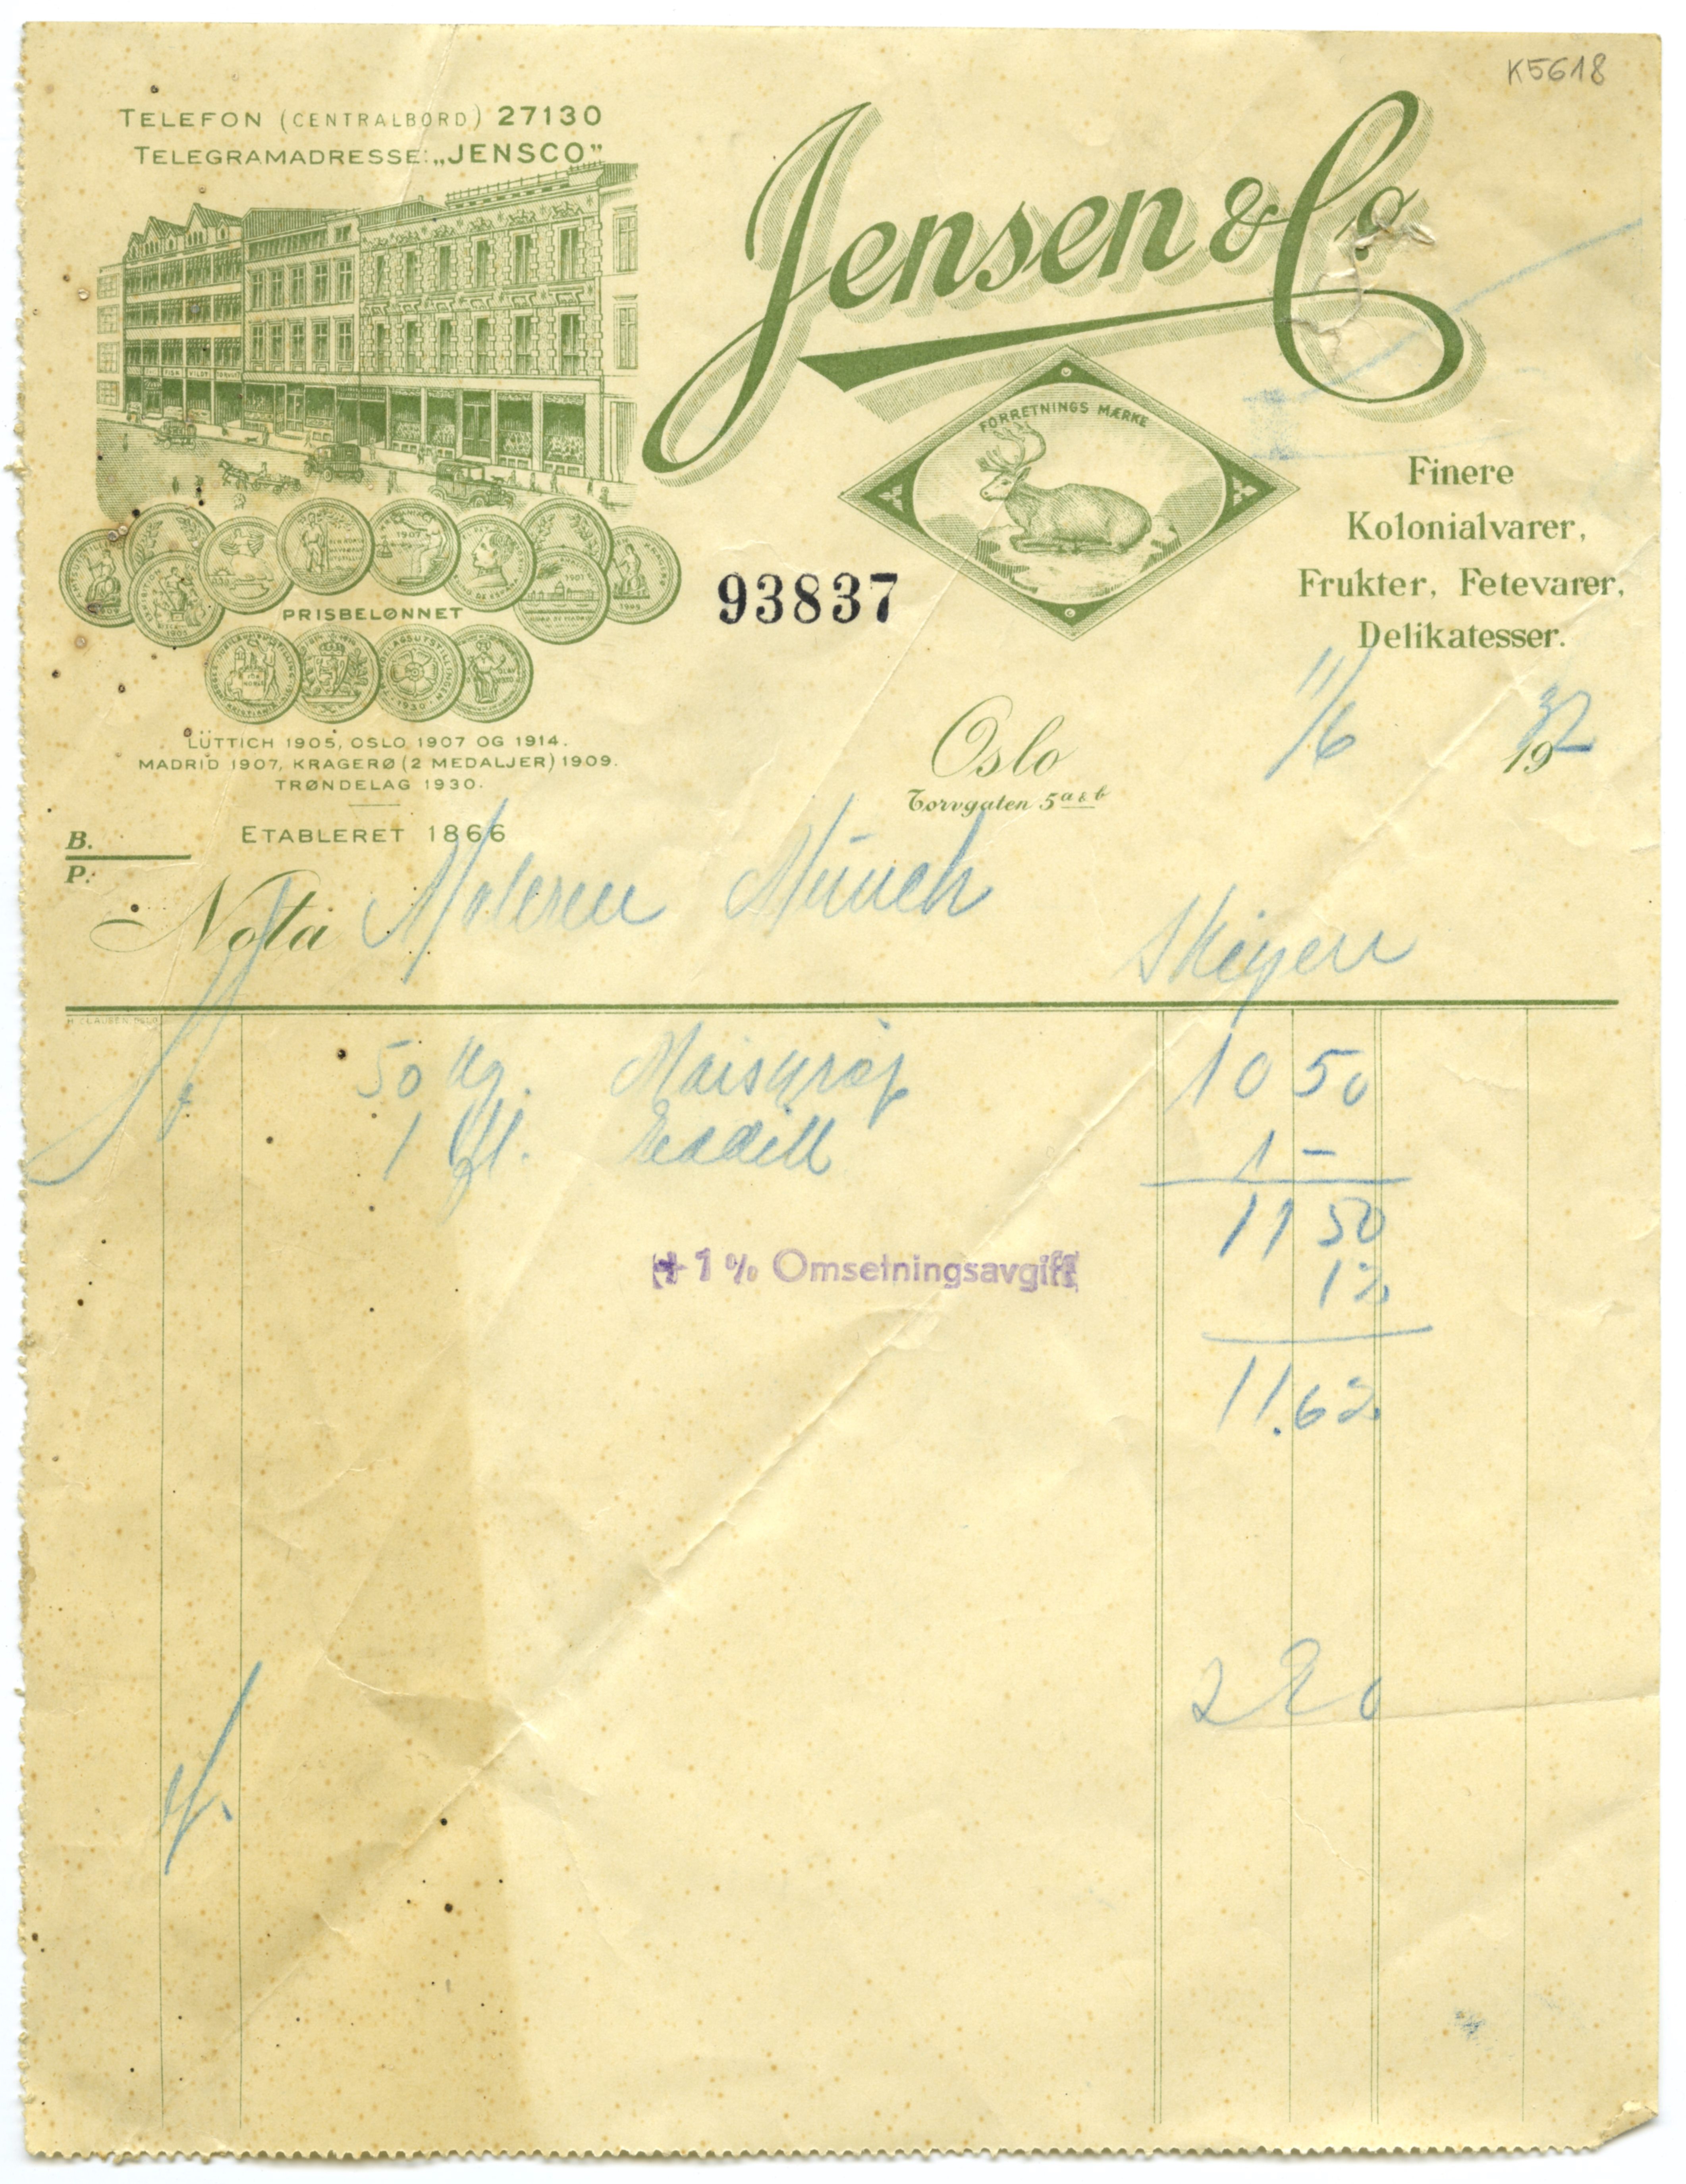 K5618
TELEFON (CENTRALBORD) 27130
TELEGRAMADRESSE: „JENSCO”
Jensen & Co
FORRETNINGS MÆRKE
Finere
Kolonialvarer,
Frukter, Fetevarer,
Delikatesser.
93837
PRISBELØNNET
LÜTTICH 1905, OSLO 1907 OG 1914.
MADRID 1907, KRAGERØ (2 MEDALJER) 1909.
TRØNDELAG 1930.
ETABLERET 1866
Oslo 11/6 1932
Torvgaten 5 a & b
B.
P.
Nota Maleren Münch
Skøyen
H. CLAUSEN, OSLO
50 kg. Maisgrøp 10 50
1 fl. Eddik 1 –
11 50
+ 1 % Omsetningsavgift 12
11.62
220